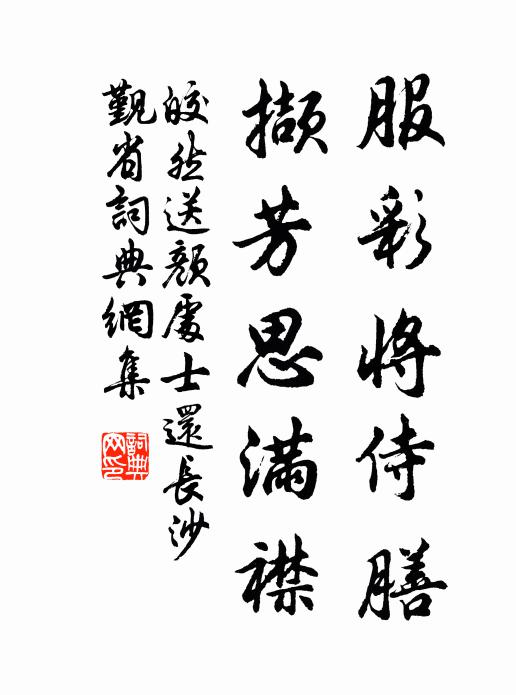 服彩將侍膳
擷芳思滿襟
皎然送顏處士還長沙
觐省詞典網集
詞典网印